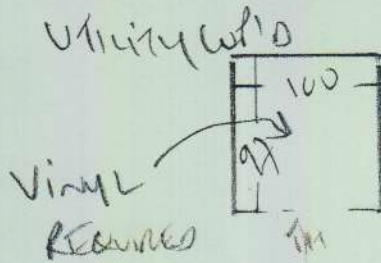 UTILITY CUP'D
100
97
VINYL
REQUIRED